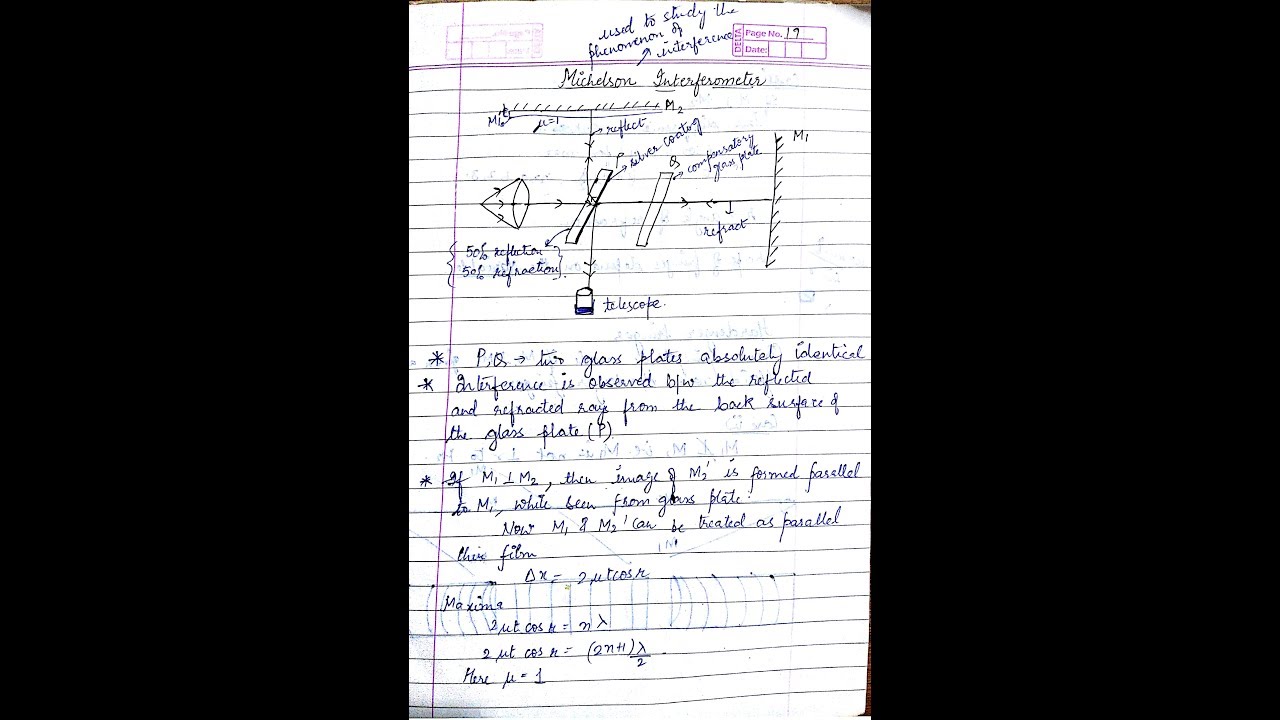 used to study the
phenomenon of
interference
DELTA
Page No. 19
Date:
Michelson Interferometer
M2
μ=1
reflect
silver coating
P
Q
compensatory
glass plate
M1
refract
50% reflection
50% refraction
telescope.
* P, Q → two glass plates absolutely identical
* Interference is observed b/w the reflected
and refracted rays from the back surface of
the glass plate (P)
* If M1 ⊥ M2, then image of M2' is formed parallel
to M1, while seen from glass plate.
Now M1 & M2' can be treated as parallel
thin film
Δx = 2μt cos r
Maxima
2μt cos r = nλ
2μt cos r = (2n+1) λ/2
Here μ = 1